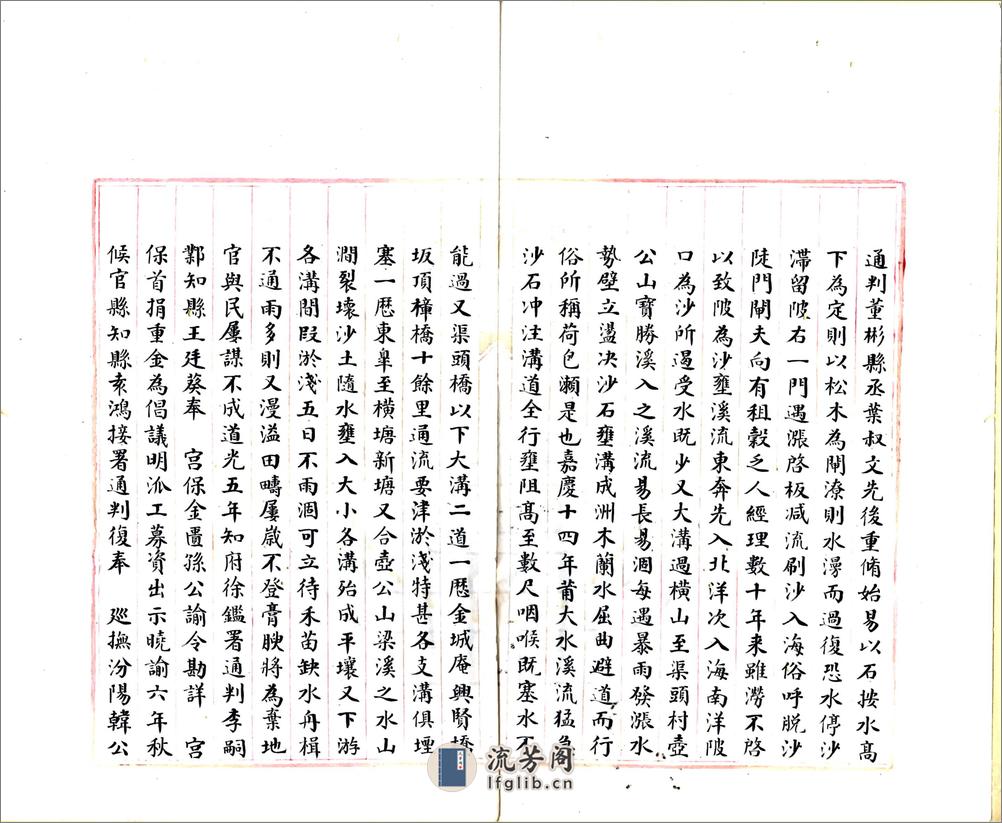 通判董彬縣丞葉叔文先後重脩始易以石按水髙
下為定則以松木為閘潦則水漫而過復恐水停沙
滯留陂右一門遇漲啓板减流刷沙入海俗呼脱沙
陡門閘夫向有租穀乏人經理數十年来雖澇不啓
以致陂為沙壅溪流東奔先入北洋次入海南洋陂
口為沙所遏受水既少又大溝過横山至渠頭村壺
公山寶勝溪入之溪流易長易涸每遇暴雨發漲水
勢壁立盪决沙石壅溝成洲木蘭水屈曲避道而行
俗所稱荷包瀨是也嘉慶十四年莆大水溪流猛急
沙石冲注溝道全行壅阻髙至數尺咽喉既塞水不
能過又渠頭橋以下大溝二道一歴金城庵興賢橋
坂頂樟橋十餘里通流要津淤淺特甚各支溝俱堙
塞一歴東臯至横塘新塘又合壺公山梁溪之水山
澗裂壞沙土隨水壅入大小各溝殆成平壤又下游
各溝間段淤淺五日不雨涸可立待禾苗缺水舟楫
不通雨多則又漫溢田疇屢歲不登膏腴將為棄地
官與民屢謀不成道光五年知府徐鑑署通判李嗣
鄴知縣王廷葵奉 宫保金匱孫公諭令勘詳 宫
保首捐重金為倡議明派工募資出示曉諭六年秋
候官縣知縣袁鴻接署通判復奉 廵撫汾陽韓公
流芳阁
lfglib.cn